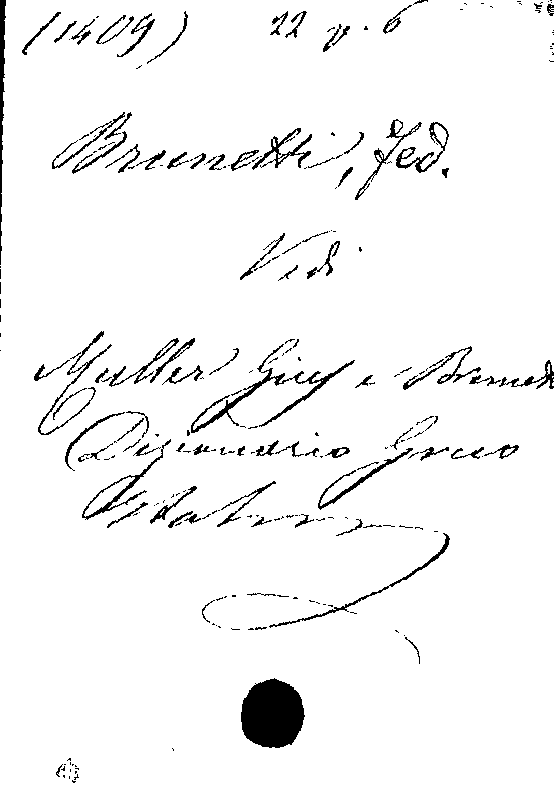 (1409) 22 p. 6
Brunetti, Fed.
Vedi
Muller Gius e Brunet
Dizionario Greco
Italiano